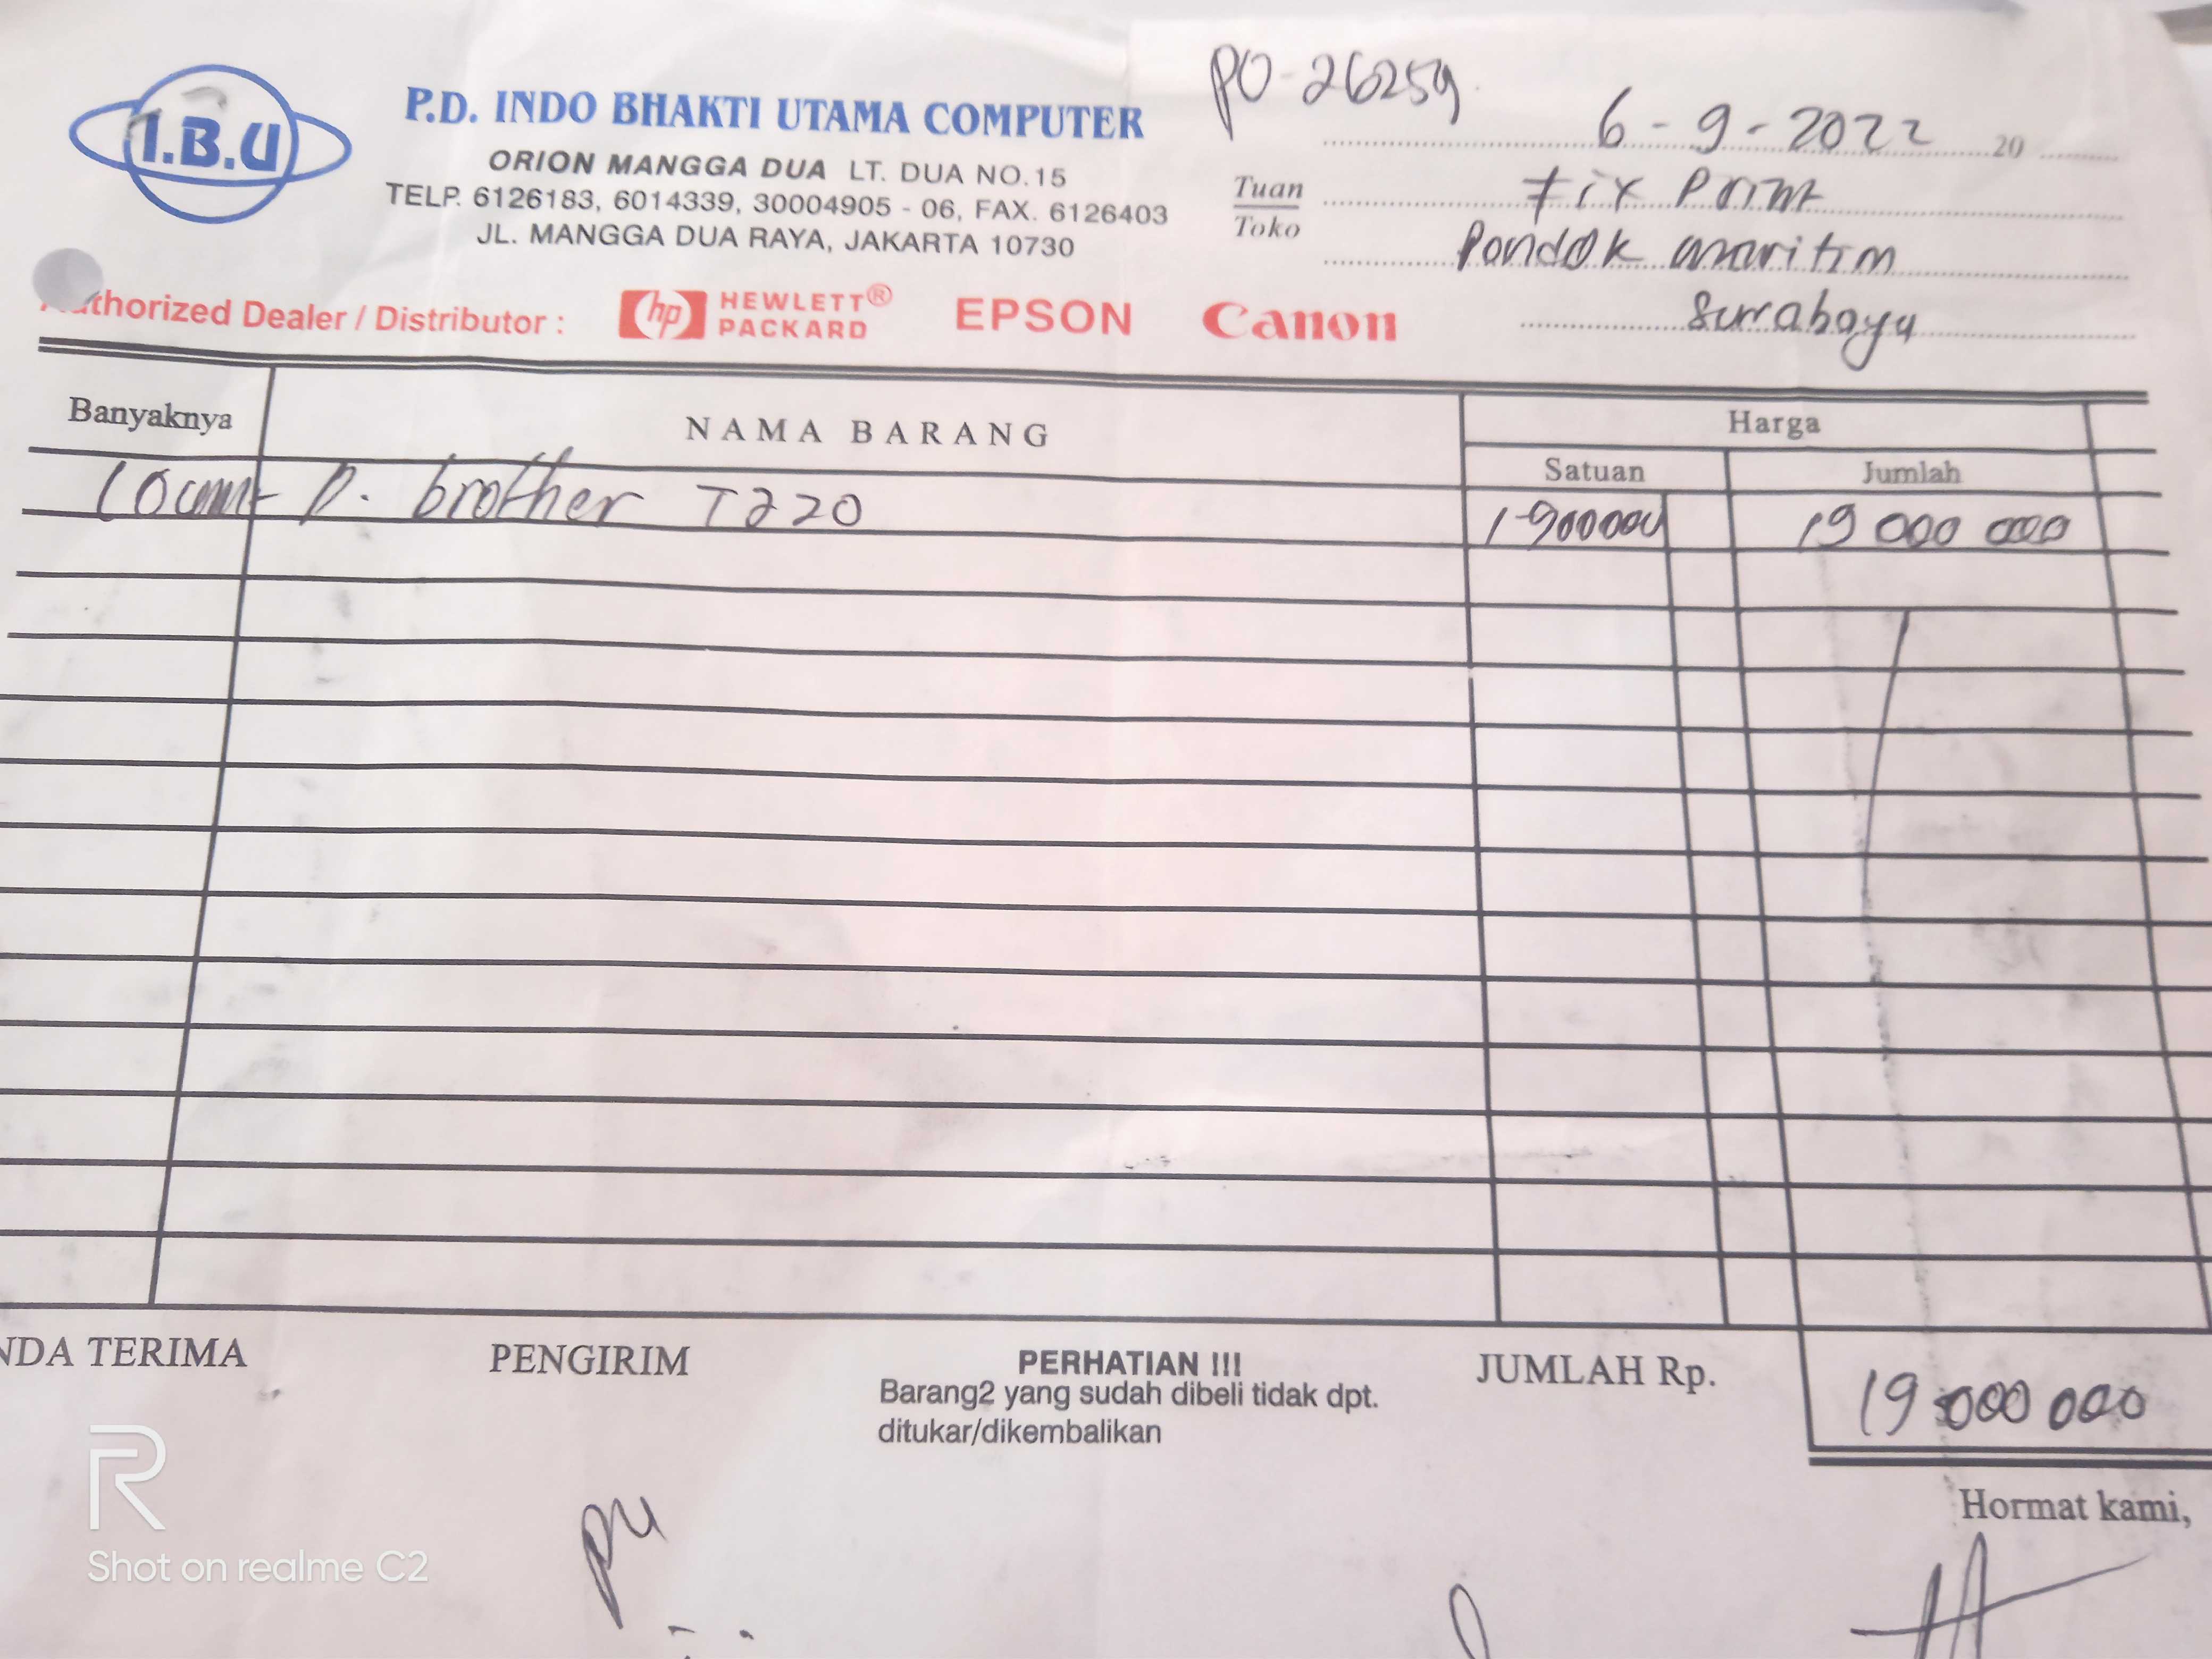 I.B.U
P.D. INDO BHAKTI UTAMA COMPUTER
ORION MANGGA DUA LT. DUA NO.15
TELP. 6126183, 6014339, 30004905 - 06, FAX. 6126403
JL. MANGGA DUA RAYA, JAKARTA 10730
PO-26259
6-9-2022 20
Tuan
Toko
Fix Print
Pondok maritim
Surabaya
Authorized Dealer / Distributor :
hp HEWLETT®
PACKARD
EPSON
Canon
Banyaknya
NAMA BARANG
Harga
Satuan
Jumlah
10 unit P. brother T220 1-900000 19 000 000
NDA TERIMA
PENGIRIM
PERHATIAN !!!
Barang2 yang sudah dibeli tidak dpt.
ditukar/dikembalikan
JUMLAH Rp.
19 000 000
Hormat kami,
R
Shot on realme C2